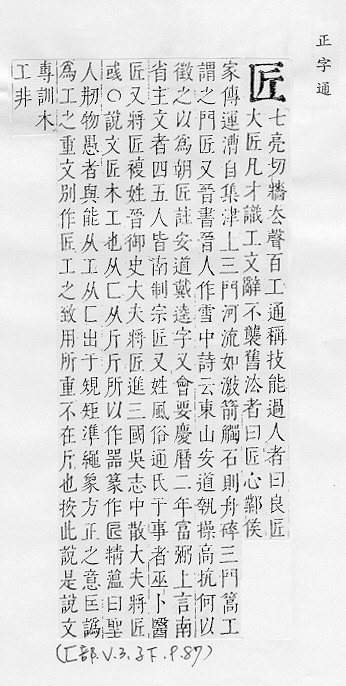 正字通
匠
七亮切牆去聲百工通稱技能過人者曰良匠
大匠凡才識工文辭不襲舊法者曰匠心鄴侯
家傳運漕自集津上三門河流如激箭觸石則舟碎三門篙工
謂之門匠又晉書晉人作雪中詩云東山安道執操高抗何以
徵之以爲朝匠註安道戴逵字又會要慶曆二年富弼上言南
省主文者四五人皆兩制宗匠又姓風俗通氏于事者巫卜醫
匠又將匠複姓晉御史大夫將匠進三國吳志中散大夫將匠
彧○說文匠木工也从匚从斤斤所以作器篆作匠精薀曰聖
人刱物愚者與能从工从匚出于規矩準繩象方正之意匡譌
爲工之重文別作匠工之致用所重不在斤也按此說是說文
專訓木
工非
(匚部.V.3,子下.P.87)